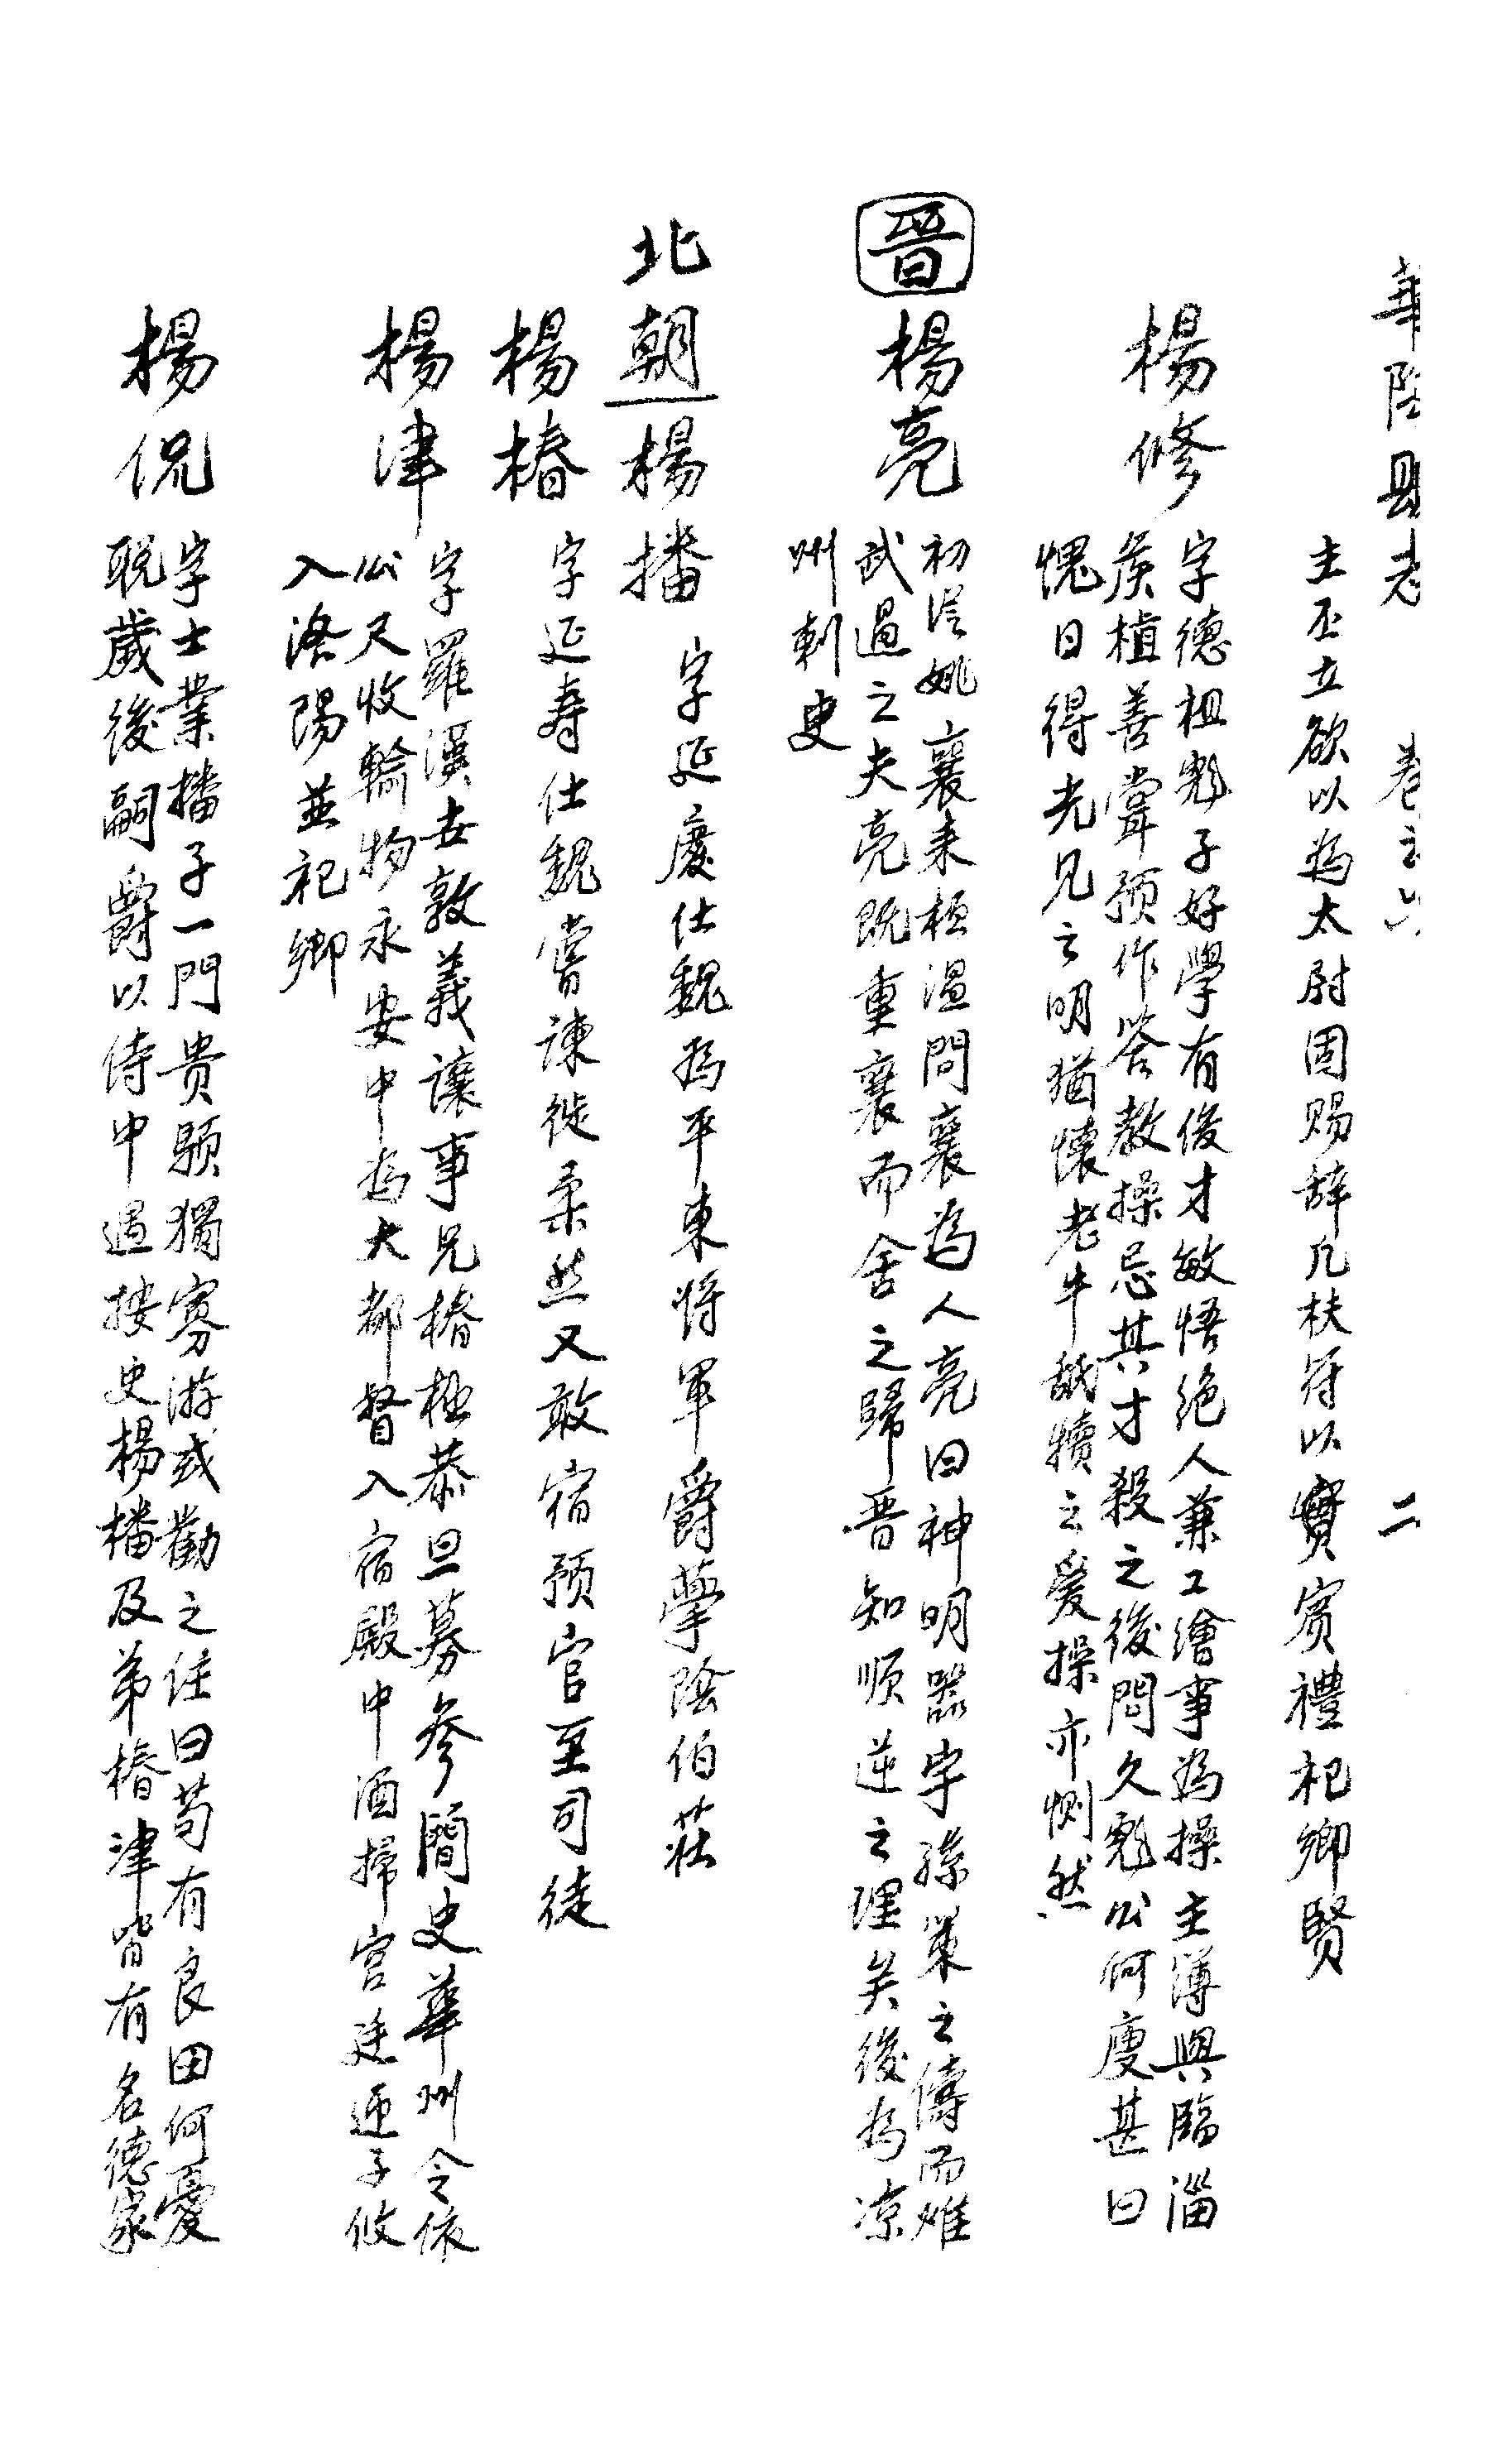 華陰縣志 卷之六 二
主丕立欲以為太尉固賜辞几杖待以賓賓禮祀鄉賢
楊修
字德祖彪子好學有俊才敏悟絶人兼工繪事為操主簿與臨淄
侯植善嘗预作答教操忌其才殺之後問久彪公何廋甚曰
愧日得先見之明猶懐老牛舐犢之爰操亦惻然
晉 楊亮
初從姚襄来桓温問襄為人亮曰神明器宇孫策之儔而雄
武過之夫亮既重襄而舍之歸晋知順逆之理矣後為凉
州刺史
北朝 楊播
字延慶仕魏為平東将軍爵華陰伯莊
楊椿
字延寿仕魏嘗諫徙柔然又敢宿预官至司徒
楊津
字羅漢去敦義讓事兄椿極恭旦暮参閤史華州令依
公尺收輪物永安中為大都督入宿殿中洒掃宫廷迎子攸
入洛陽並祀鄉
楊侃
字士業播子一門贵顯獨寡游或勸之仕曰苟有良田何憂
晚歲後嗣爵以侍中過按史楊播及弟椿津皆有名德家